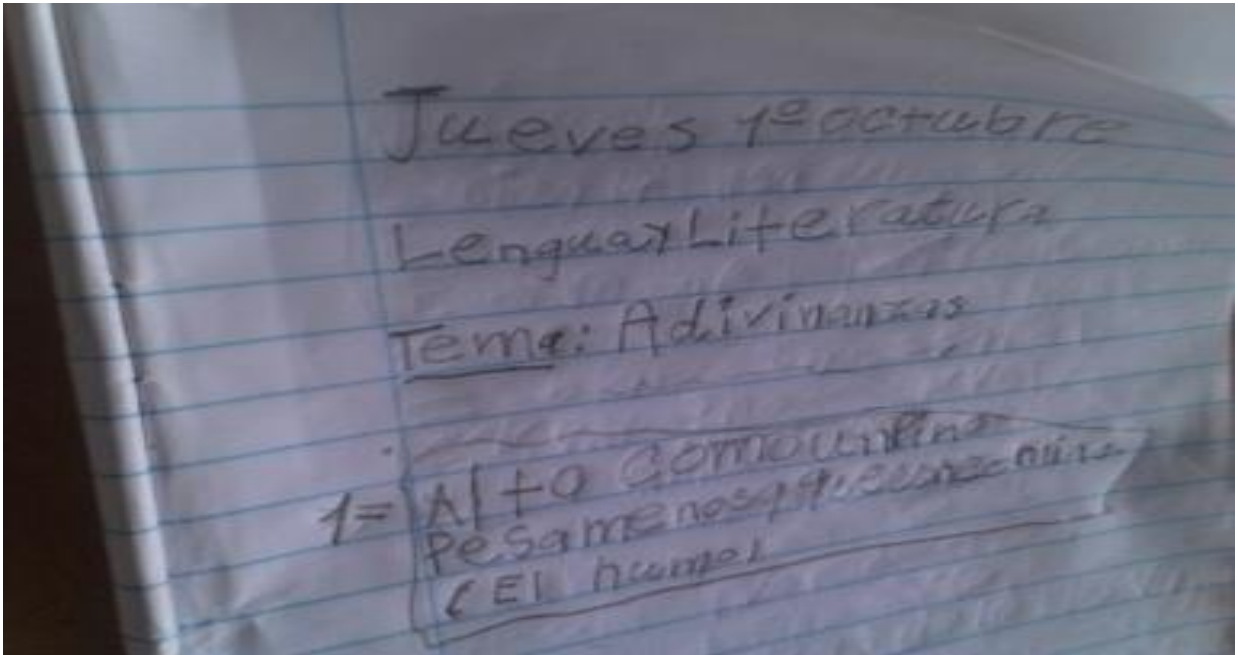 Jueves 1º octubre
Lengua y Literatura
Tema: Adivinanzas
1= Alto como un Pino
Pesa menos que
(El humo)